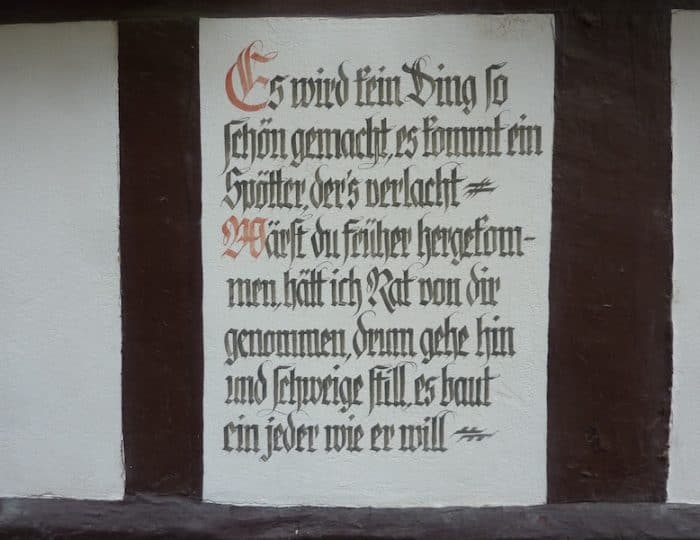 Es wird kein Ding so
schön gemacht, es kommt ein
Spötter, der's verlacht
Wärst du früher hergekom-
men, hätt ich Rat von dir
genommen, drum gehe hin
und schweige still, es baut
ein jeder wie er will